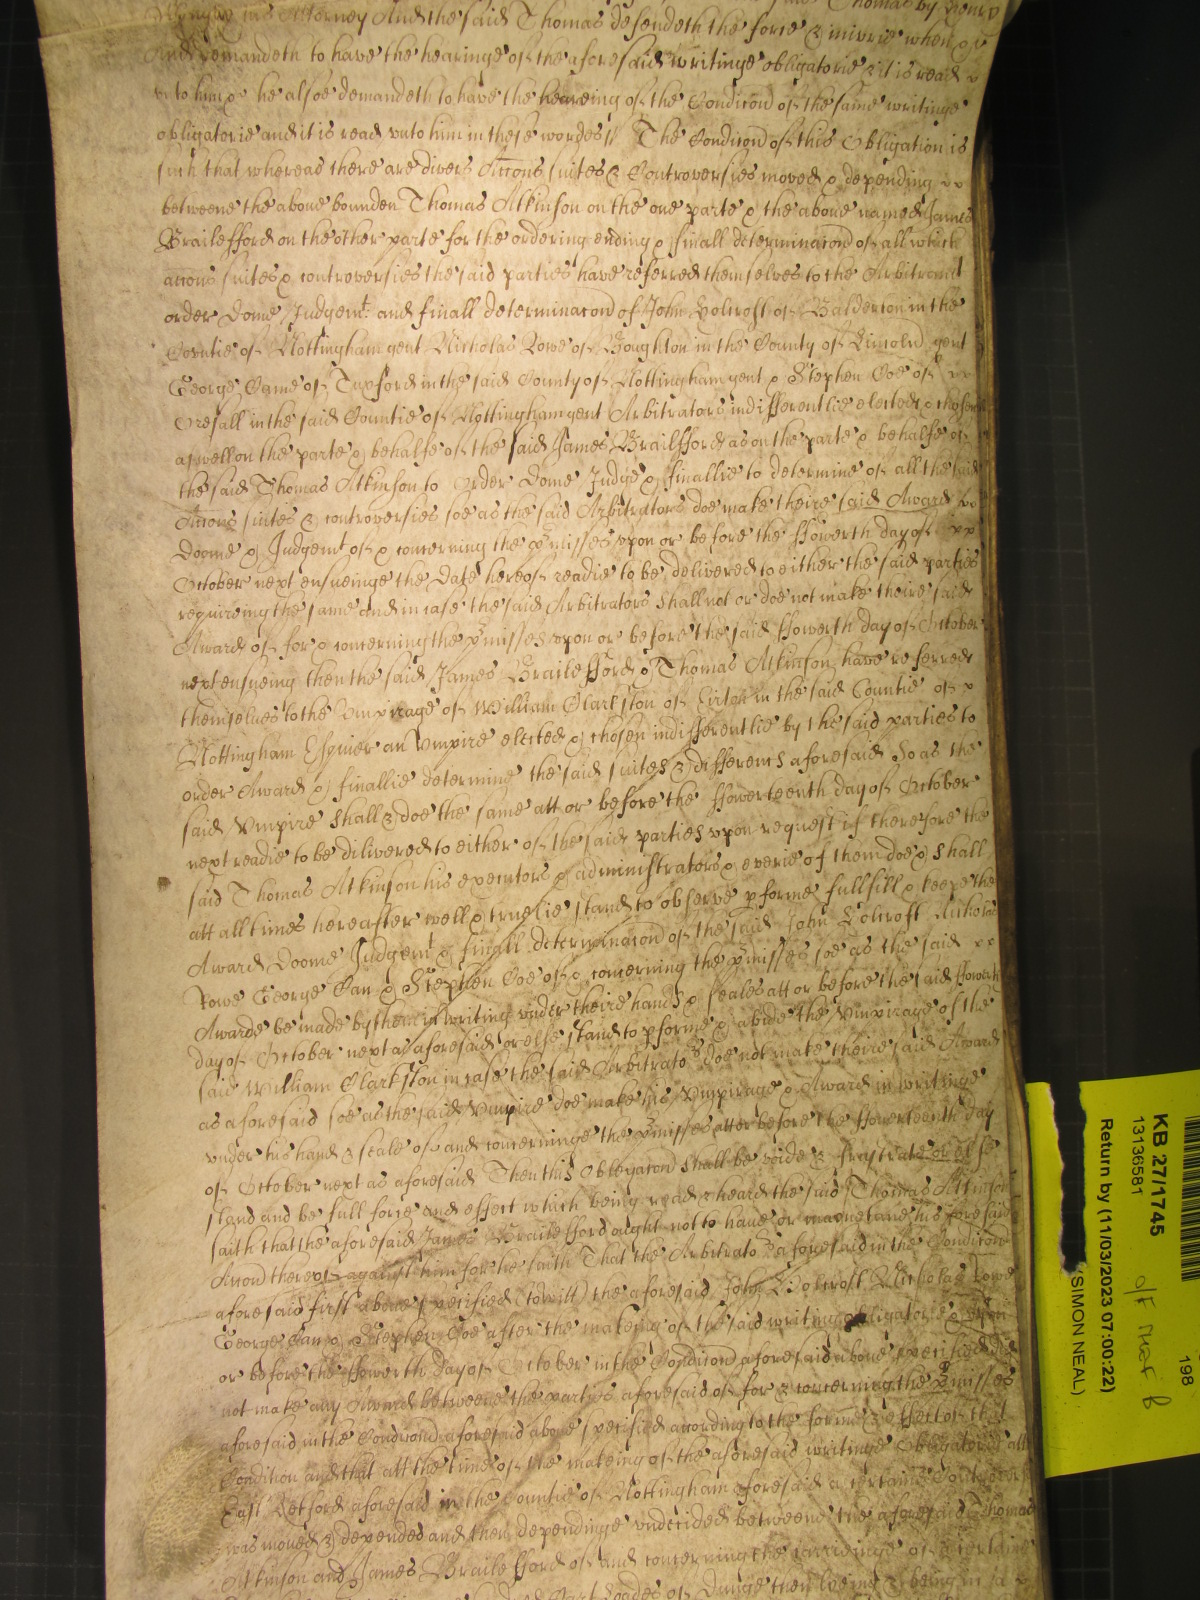 his Attorney And the said Thomas defendeth the force & iniurie when &c
And demandeth to have the hearinge of the aforesaid writinge obligatorie & it is read
vnto him &c he alsoe demandeth to have the heareing of the Condicon of the same writinge
obligatorie and it is read vnto him in these wordes // The Condicon of this Obligation is
such that whereas there are divers Accons suites & Controversies moved & depending
betweene the aboue bounden Thomas Atkinson on the one parte & the aboue named James
Brailefford on the other parte for the ordering ending & finall determinacond of all which
accons suites & controversies the said parties have referred themselves to the Arbitramt
order Dome Judgemt and finall determinacond of John Holcroft of Balderton in the
Countie of Nottingham gent Nicholas Rowe of Boughton in the County of Lincoln gent
George Came of Tuxford in the said County of Nottingham gent & Stephen Coe of
in the said Countie of Nottingham gent Arbitrators indifferentlie elected & chosen
aswell on the parte & behalfe of the said James Brailfford as on the parte & behalfe of
the said Thomas Atkinson to Order Dome Judge & finallie to determine of all the said
Accons suites & controversies soe as the said Arbitrators doe make theire said Award
Doome & Judgemt of & concerning the pmisses vpon or before the ffowerth day of
October next ensueinge the Date hereof readie to be delivered to either the said parties
requireing the same and in case the said Arbitrators shall not or doe not make theire said
Award of for & concerning the pmisses vpon or before the said ffowerth day of October
next ensueing then the said James Brailefford & Thomas Atkinson have referred
themselues to the Vmpirage of William Clarkston of Kirton in the said Countie of
Nottingham Esquier an Vmpire elected & chosen indifferentlie by the said parties to
order Award & finallie determine the said suites & differences aforesaid So as the
said Vmpire shall & doe the same att or before the ffowerteenth day of October
next readie to be dilivered to either of the said parties vpon request if therefore the
said Thomas Atkinson his executors & administrators & everie of them doe & shall
att all times hereafter well & truelie stand to observe pforme fullfill & keepe the
Award Doome Judgemt & finall determinacond of the said John Holcroft Nicholas
Rowe George Can & Stephen Coe of & concerning the pmisses soe as the said
Awarde be made by them in writing vnder theire hands & seales att or before the said ffowerth
day of October next as aforesaid or else stand to pforme & abide the Vmpirage of the
said William Clarkston in case the said Arbitrators doe not make theire said Award
as aforesaid soe as the said Vmpire doe make his Vmpirage & Award in writinge
vnder his hand & seale of and concerninge the pmisses att or before the ffowerteenth day
of October next as aforesaid Then this Obligacond shall be voide & frustrate or else
stand and be full force and effect which being read & heard the said Thomas Atkinson
saith that the aforesaid James Brailefford ought not to haue or maynetane his foresaid
Accond thereof against him for he saith That the Arbitrators aforesaid in the Condicon
aforesaid first aboue specified (towitt) the aforesaid John Holcroft Nicholas Rowe
George Can & Stephen Coe after the makeing of the said writing obligatorie & vpon
or before the ffowerth day of October in the Condicond aforesaid aboue specified did
not make any Award betweene the parties aforesaid of for & concerning the pmisses
aforesaid in the Condicond aforesaid aboue specified according to the forme & effect of that
Condition and that att the time of the makeing of the aforesaid writinge Obligatorie att
East Retford aforesaid in the Countie of Nottingham aforesaid a certaine Controversie
was moued & depended and then dependinge vndecided betweene the aforesaid Thomas
Atkinson and James Brailefford of and concerning the carrieinge of certaine
Cart Loades of Dunge then lyeing & being in a
KB 27/1745
13136581
Return by (11/03/2023 07:00:22)
(SIMON NEAL)
198